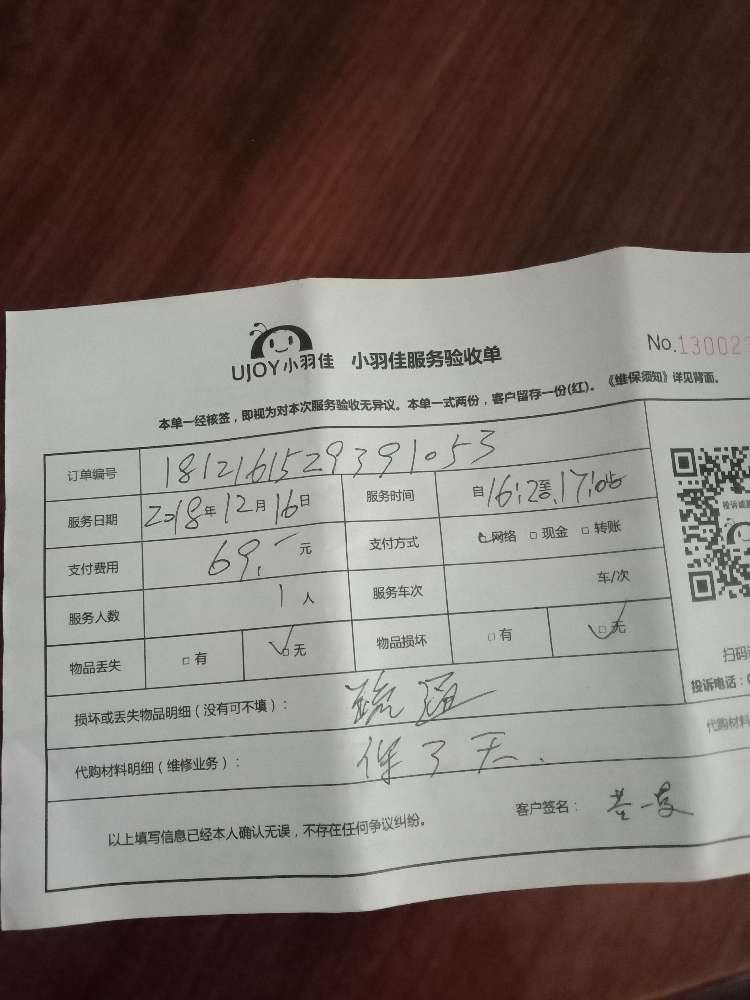 UJOY小羽佳 小羽佳服务验收单
No.130022
本单一经核签，即视为对本次服务验收无异议。本单一式两份，客户留存一份(红)。《维保须知》详见背面。
订单编号 181216152939 1053
服务日期 2018年12月16日 服务时间 自16:2至17:05
支付费用 69.一元 支付方式 网络 □ 现金 □ 转账
服务人数 1人 服务车次 车/次
物品丢失 □ 有 ☑ 无 物品损坏 □ 有 ☑ 无
投诉
扫码
投诉电话：0
损坏或丢失物品明细（没有可不填）： 疏通
代购材料明细（维修业务）： 保了天. 代购材料
以上填写信息已经本人确认无误，不存在任何争议纠纷。 客户签名：